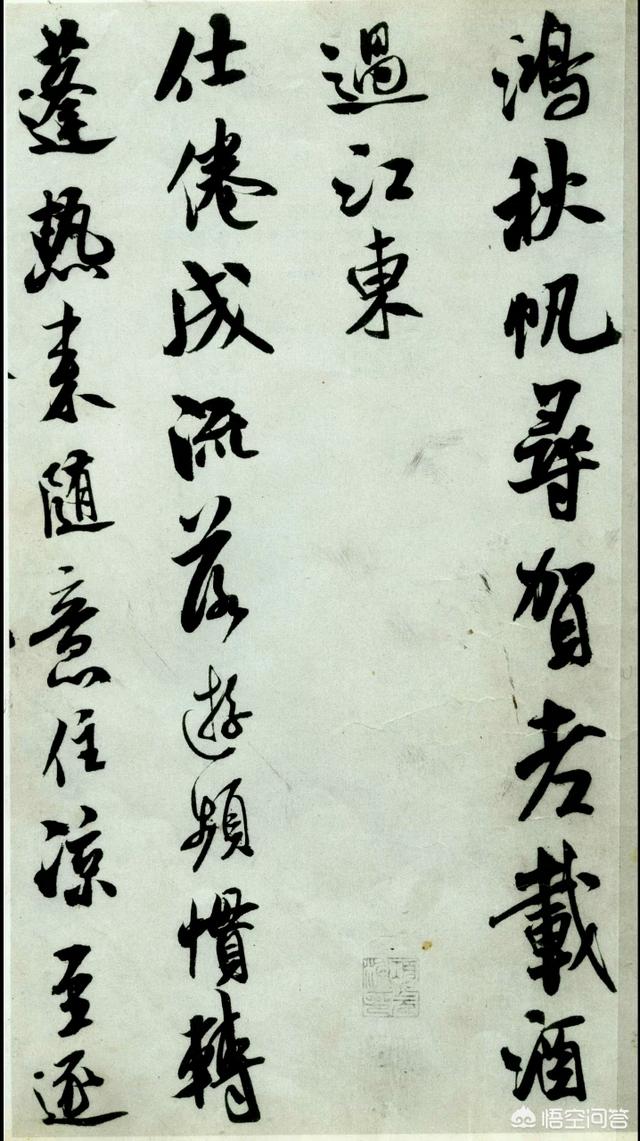 鴻秋帆尋賀老載酒
過江東
仕倦成流落遊頻慣轉
蓬熱来隨意住涼至逐
悟空问答